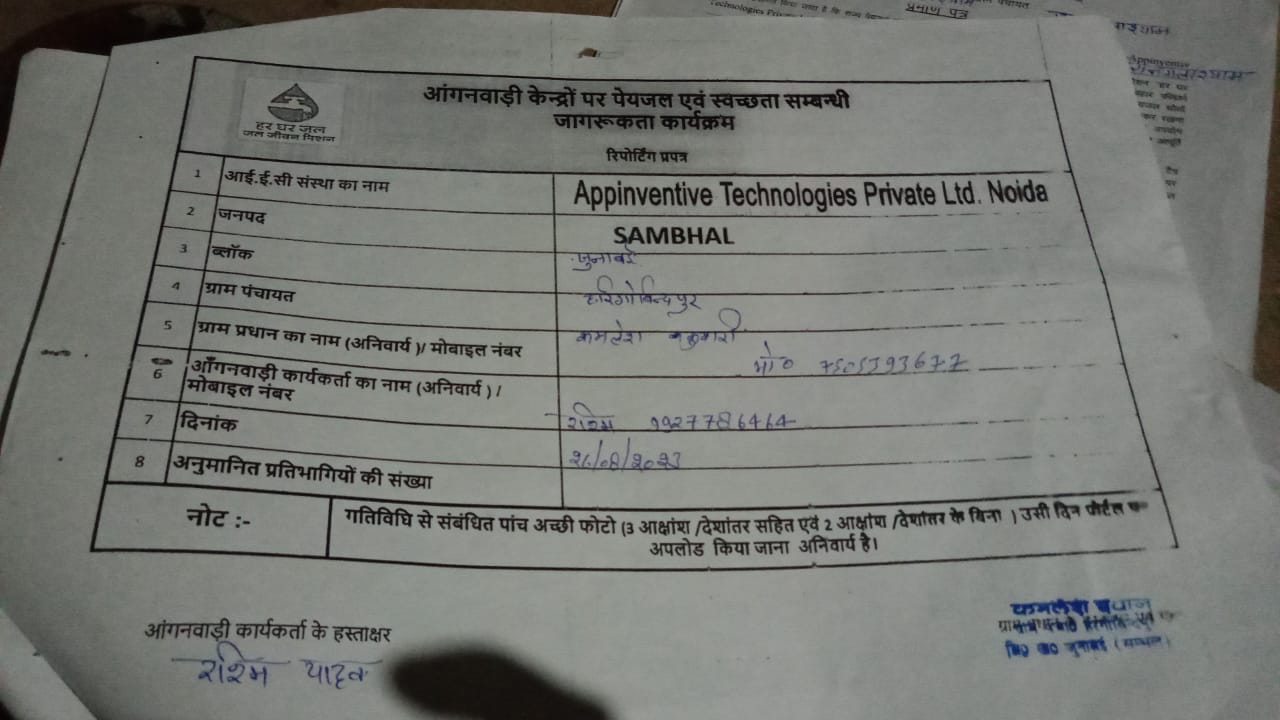 प्रमाण पत्र
हर घर जल
जल जीवन मिशन
आंगनवाड़ी केन्द्रों पर पेयजल एवं स्वच्छता सम्बन्धी
जागरूकता कार्यक्रम
रिपोर्टिंग प्रपत्र
1 आई.ई.सी संस्था का नाम Appinventive Technologies Private Ltd. Noida
2 जनपद SAMBHAL
3 ब्लॉक जुनाबई
4 ग्राम पंचायत हरिगोविन्दपुर
5 ग्राम प्रधान का नाम (अनिवार्य )/ मोबाइल नंबर कमलेश
मो०
6 आँगनवाड़ी कार्यकर्ता का नाम (अनिवार्य ) /
मोबाइल नंबर
7 दिनांक रश्मि 9927786464
8 अनुमानित प्रतिभागियों की संख्या
नोट :- गतिविधि से संबंधित पांच अच्छी फोटो (3 आक्षांश /देशांतर सहित एवं 2 आक्षांश /देशांतर के बिना ) उसी दिन पोर्टल पर
अपलोड किया जाना अनिवार्य है।
आंगनवाड़ी कार्यकर्ता के हस्ताक्षर
रश्मि यादव
कमलेश